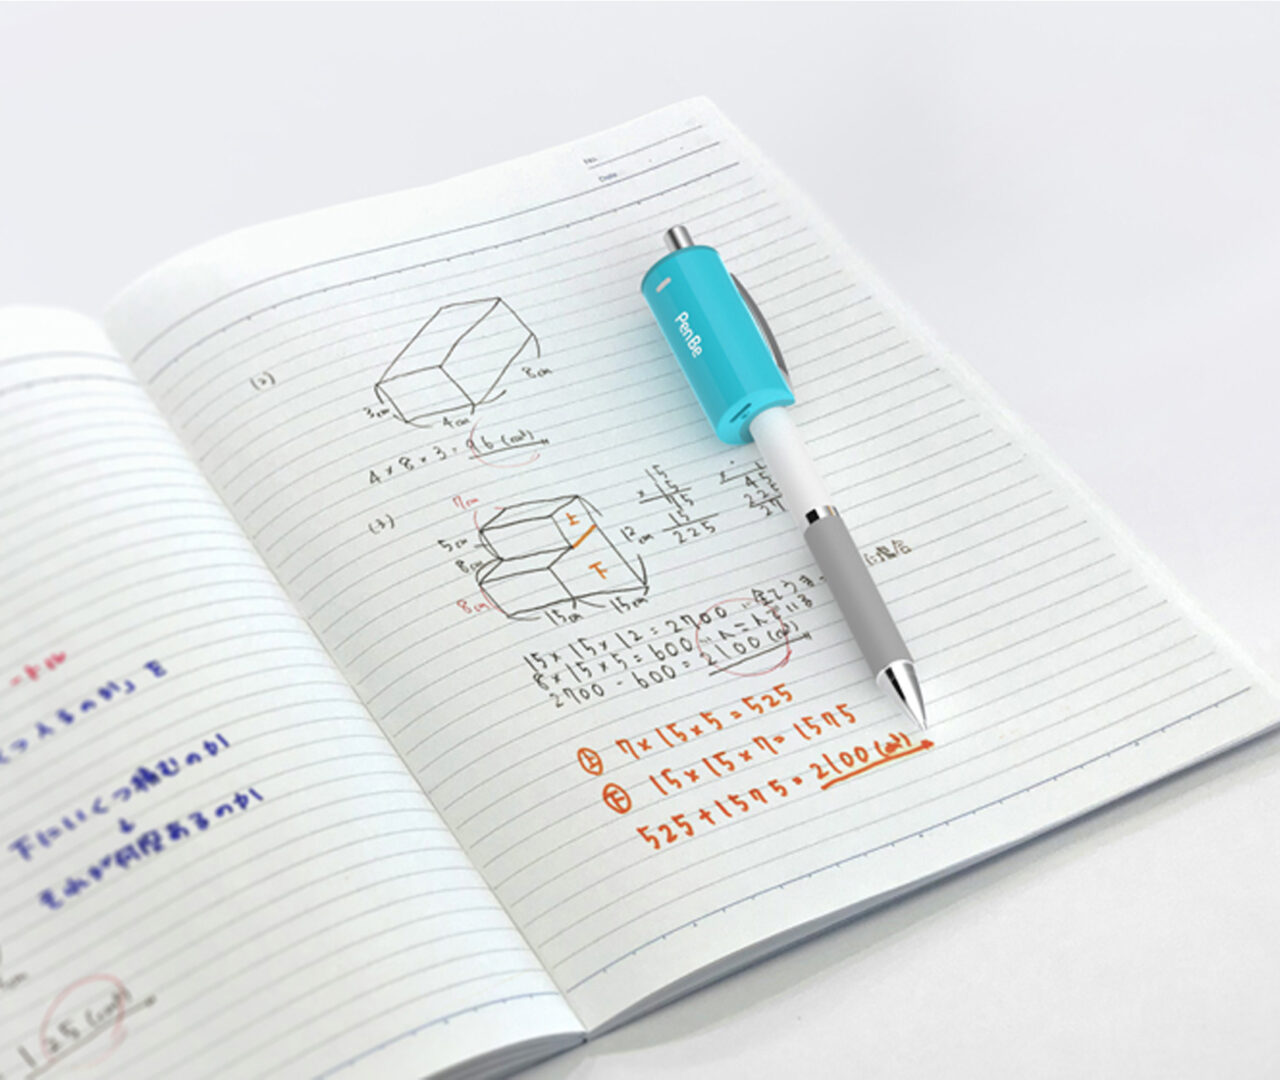 No.
Date
PenBe
(2)
3cm
4cm
8cm
4×8×3=96(cm³)
(3)
7cm
5cm
8cm
8cm
上
下
12cm
15cm
15cm
15
× 5
75
15
225
45
225
27
15×15×12=2700
8×15×5=600
2700-600=2100(cm³)
上 7×15×5=525
下 15×15×7=1575
525+1575=2100(cm³)
下にいくつ積むのか
↓
それが何段あるのか
125(cm³)